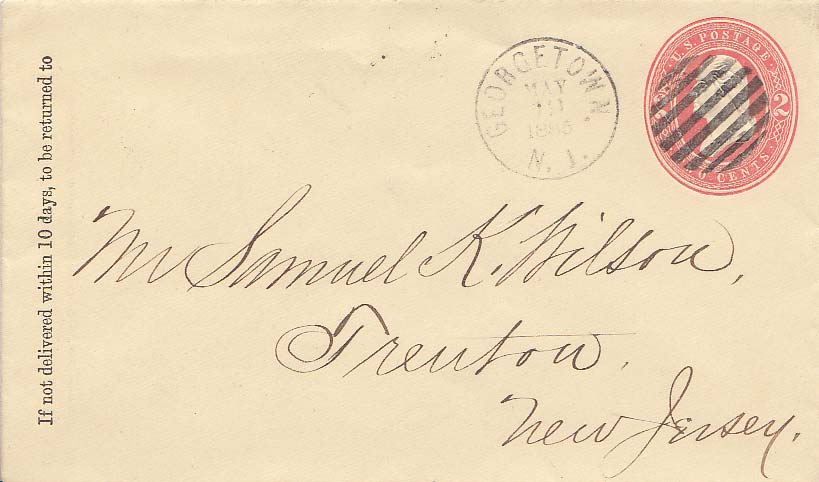 If not delivered within 10 days, to be returned to
GEORGETOWN
MAY
1885
N. J.
U.S. POSTAGE
2
CENTS
Mr Samuel K. Wilson,
Trenton.
New Jersey.